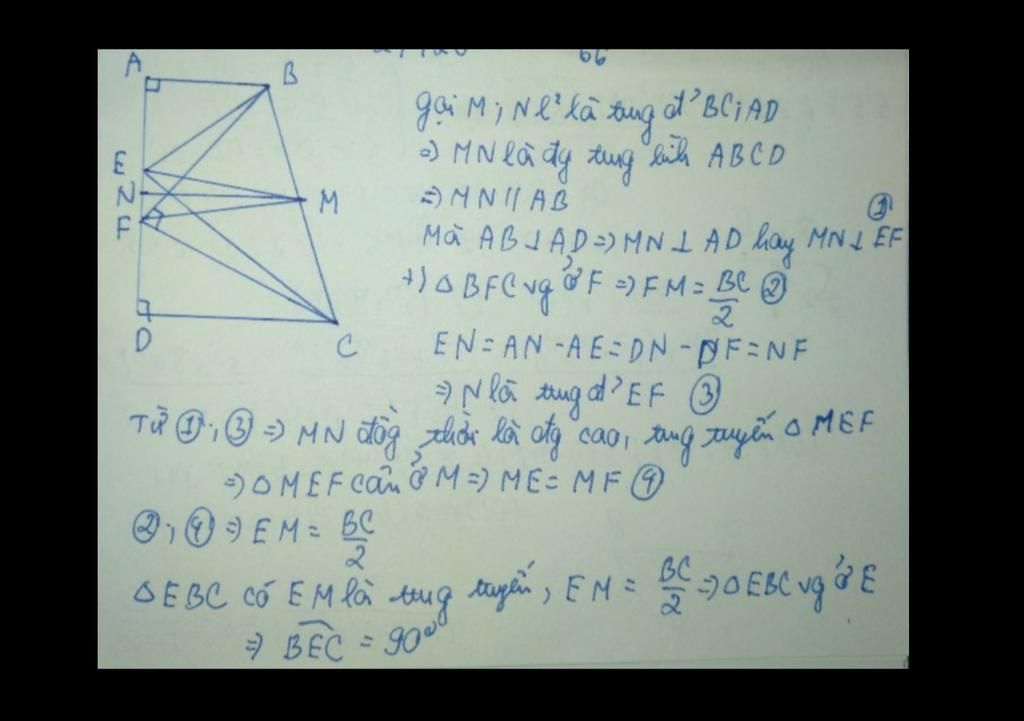 A
B
E
N
F
M
D
C
gọi M; N l² là tug đ' BC; AD
=> MN là đg tug bình ABCD
=> MN // AB
Mà AB ⊥ AD => MN ⊥ AD hay MN ⊥ EF ①
+) △ BFC vg ở F => FM = BC/2 ②
EN = AN - AE = DN - DF = NF
=> N là tug đ' EF ③
Từ ①; ③ => MN đồg thời là đg cao, tug tuyến △ MEF
=> △ MEF cân ở M => ME = MF ④
②; ④ => EM = BC/2
△ EBC có EM là tug tuyến, EM = BC/2 => △ EBC vg ở E
=> BEC = 90°